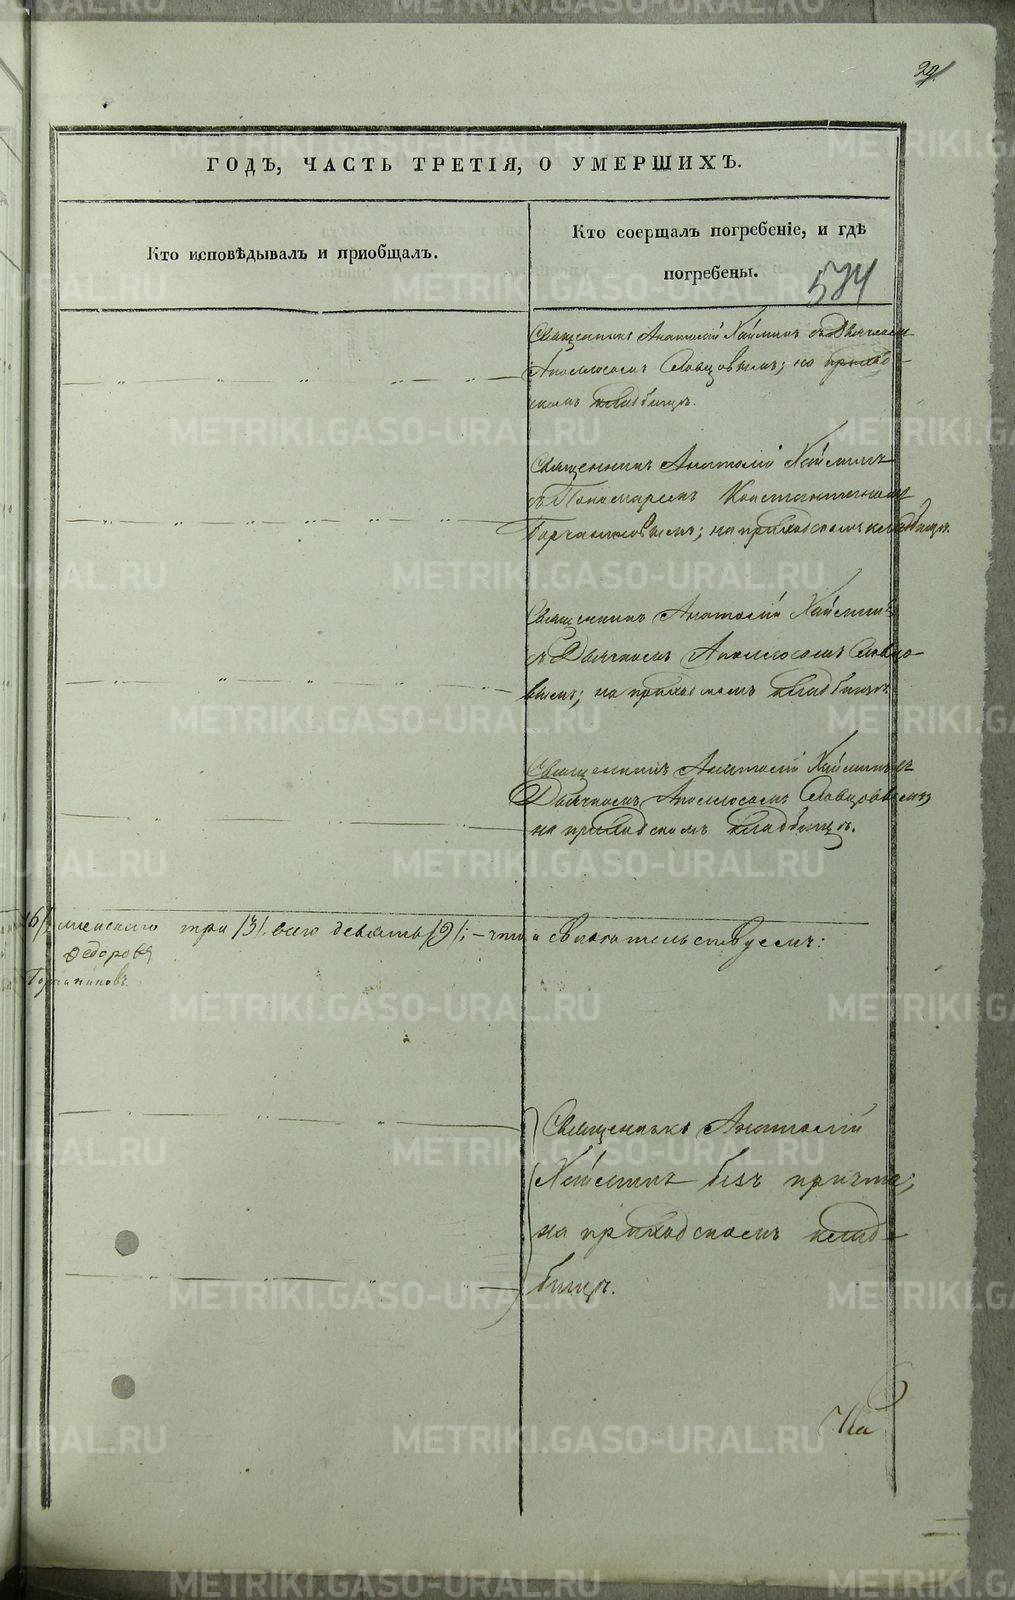 29
ГОДЪ, ЧАСТЬ ТРЕТІЯ, О УМЕРШИХЪ.
Кто исповѣдывалъ и приобщалъ.
Кто соершалъ погребеніе, и гдѣ
погребены.
574
Священникъ Анатолій Хаймин съ Дьячкомъ
Аполлосомъ Словцовымъ; на приход-
скомъ кладбищѣ.
Священникъ Анатолій Хайминъ
съ Пономаремъ Константиномъ
Горчаковымъ; на приходскомъ кладбищѣ.
Священникъ Анатолій Хайминъ
съ Дьячкомъ Аполлосомъ Словцо-
вымъ; на приходскомъ кладбищѣ.
Священникъ Анатолій Хайминъ съ
Дьячкомъ Аполлосомъ Словцовымъ;
на приходскомъ кладбищѣ.
/6/ женскаго три /3/. всего девять /9/; – что и свидѣтельствуемъ:
Федоровъ
Священикъ Анатолій
Хайминъ безъ причта;
на приходскомъ клад-
бищѣ.
На
METRIKI.GASO-URAL.RU